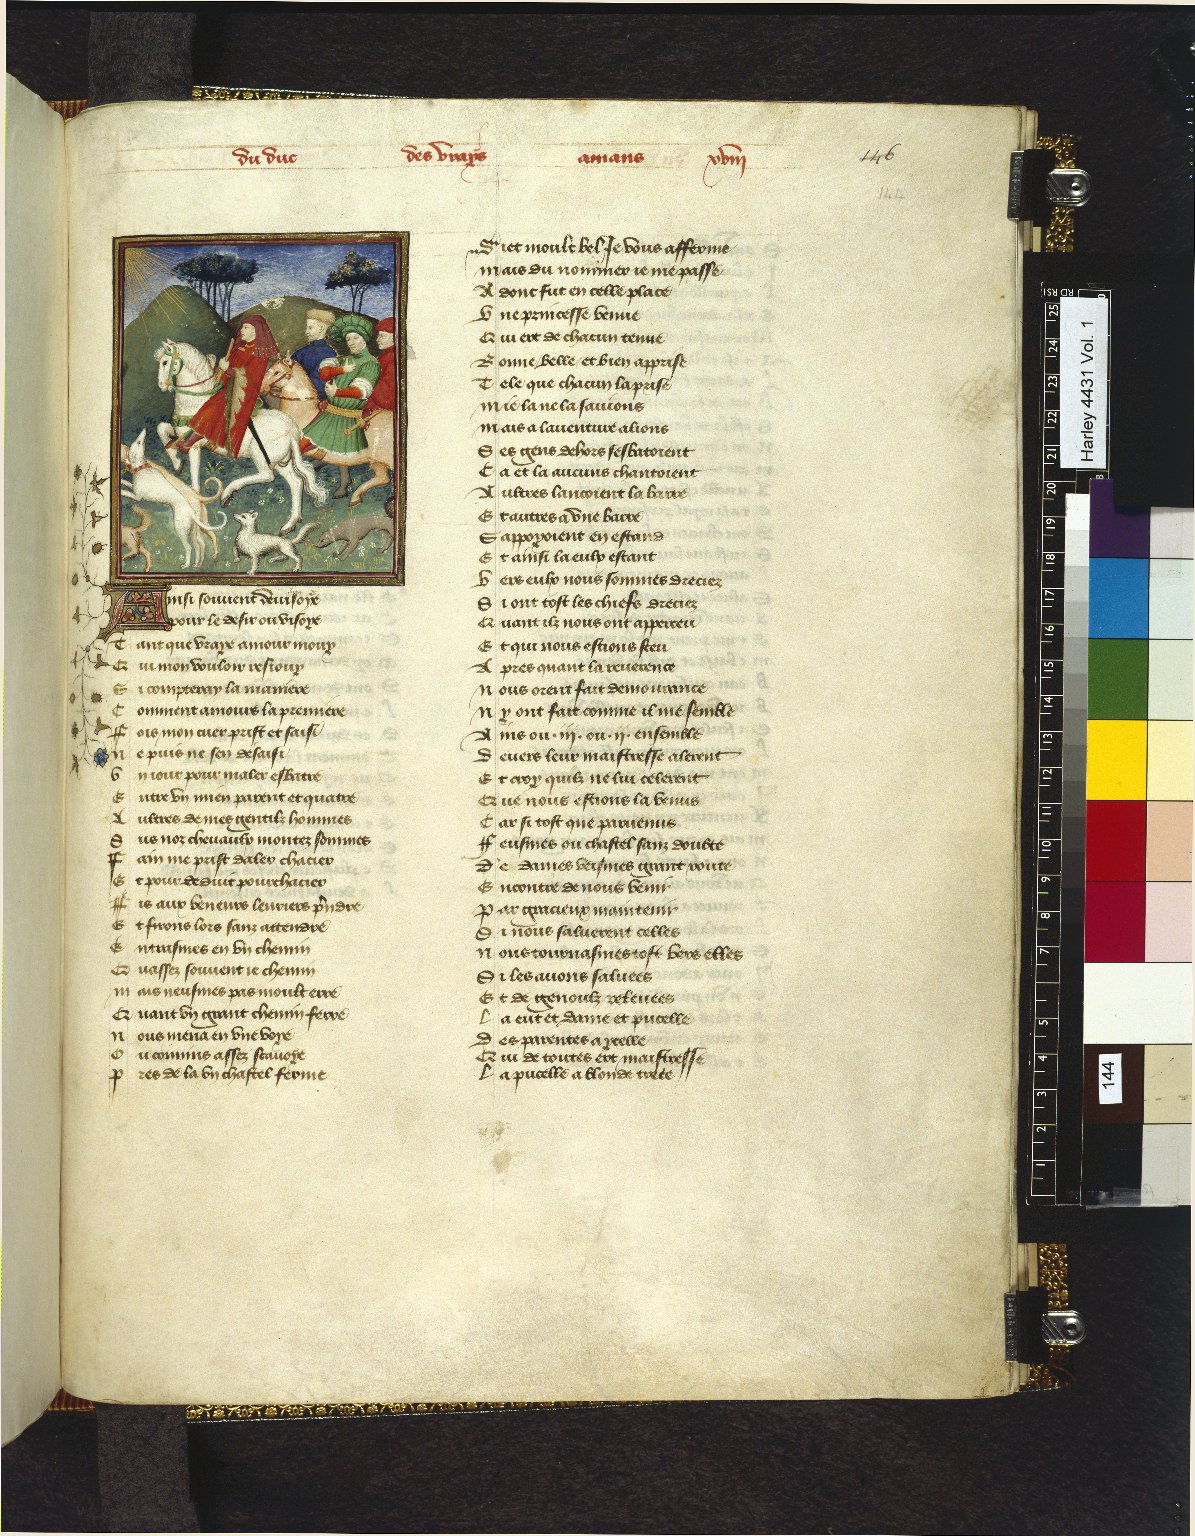 du duc des vrays amans xviii
146
144
Ainsi souvent devisoye
pour le desir ou visoye
Tant que vraye amour mouy
Qui mon vouloir resiouy
Si compteray la maniere
Comment amours la premiere
Ffois mon cuer prist et saisi
Ne puis ne sen desaisi
Un iour pour maler esbatre
Entre vn mien parent et quatre
Aultres de mes gentilz hommes
Sus noz cheuaulx montez sommes
Ffain me prist daler chacier
Et pour deduit pourchacier
Ffis aux veneurs leuriers prendre
Et furons lors sanz attendre
Entrasmes en vn chemin
Quassez souuent ie chemin
Mais neusmes pas moult erré
Quant vn grant chemin ferré
Nous mena en vne voye
Ou connins assez scauoye
Pres de la vn chastel ferme
Siet moult bel Je vous afferme
Mais du nommer ie me passe
Adonc fut en celle place
Vne princesse venue
Qui ert de chacun tenue
Bonne belle et bien apprise
Tele que chacun la prise
Mie la ne la sauions
Mais a lauenture alions
Ses gens dehors sesbatoient
Ca et la aucuns chantoient
Aultres lancoient la barre
Et autres a vne barre
Sappoyoient en estand
Et ainsi la eulx estant
Vers eulx nous sommes dreciez
Si ont tost les chiefs dreciez
Quant ilz nous ont apperceu
Et qui nous estions sceu
Apres quant la reuerence
Nous orent fait demourance
Ny ont fait comme il me semble
Ains ou · iij · ou · ij · ensemble
Deuers leur maistresse alerent
Et croy quilz ne lui celerent
Que nous estions la venus
Car si tost que paruenus
Ffeusmes ou chastel sanz doubte
De dames veismes grant route
Encontre de nous venir
Par gracieux maintenir
Si nous saluerent celles
Nous tournasmes tost vers elles
Si les auons saluees
Et de genoulz releuees
La eut et dame et pucelle
Des parentes a ycelle
Qui de toutes ert maistresse
La pucelle a blonde trece
Harley 4431 Vol. 1
144